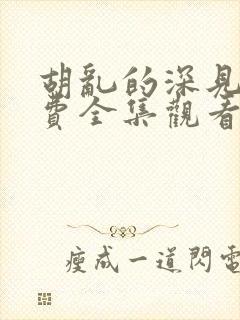 胡亂的深見
費全集觀看
瘦成一道閃電